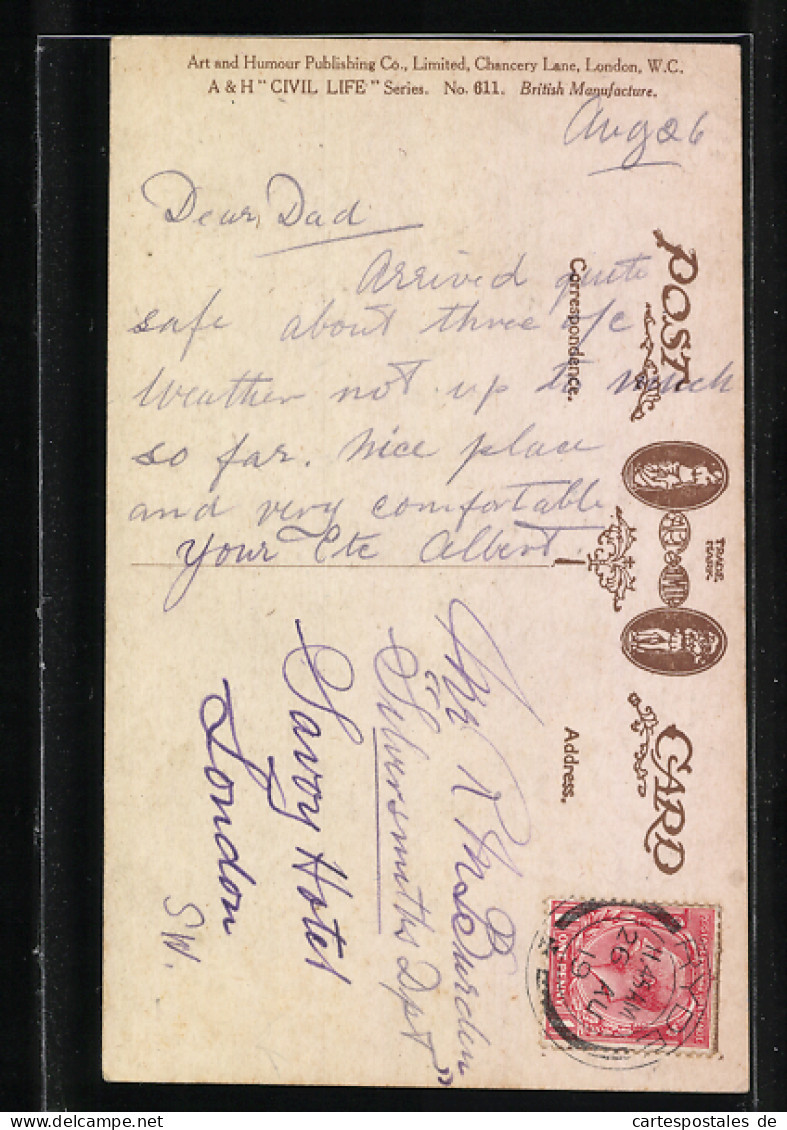 Art and Humour Publishing Co., Limited, Chancery Lane, London, W.C.
A & H "CIVIL LIFE" Series. No. 611. British Manufacture.
Aug 26
Dear Dad
Arrived quite
safe about three o/c
Weather not up to much
so far. Nice place
and very comfortable
Your Etc Albert.
POST CARD
Correspondence.
TRADE MARK
Address.
Mr R Burden
"Silversmiths Dpt"
Savoy Hotel
London
S.W.
ONE PENNY
RYDE
11.45 AM
26 AU
19
cartespostales-de.com